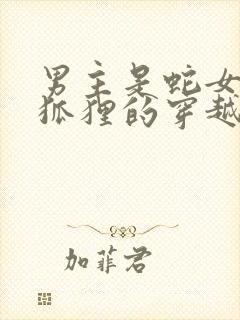 男主是蛇女
狐狸的穿越
加菲君